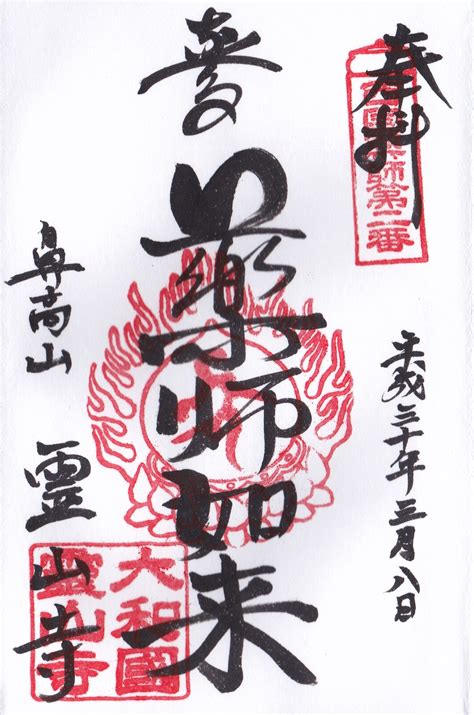 奉拝
西國薬師第二番
平成三十年三月八日
薬師如来
鼻高山
霊山寺
大和國
靈山寺